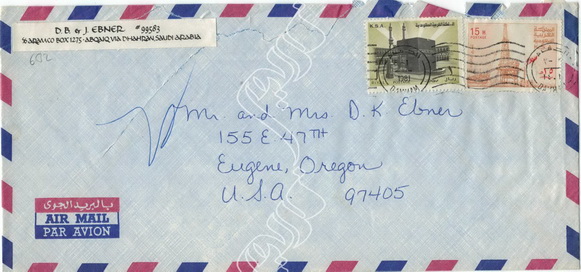 D. B. & J. EBNER #99583
% ARAMCO BOX 1275 · ABQAIQ VIA DHAHRAN, SAUDI ARABIA
K.S.A.
15
Mr. and Mrs. D. K Ebner
155 E 47TH
Eugene, Oregon
U.S.A. 97405
بالبريد الجوي
AIR MAIL
PAR AVION